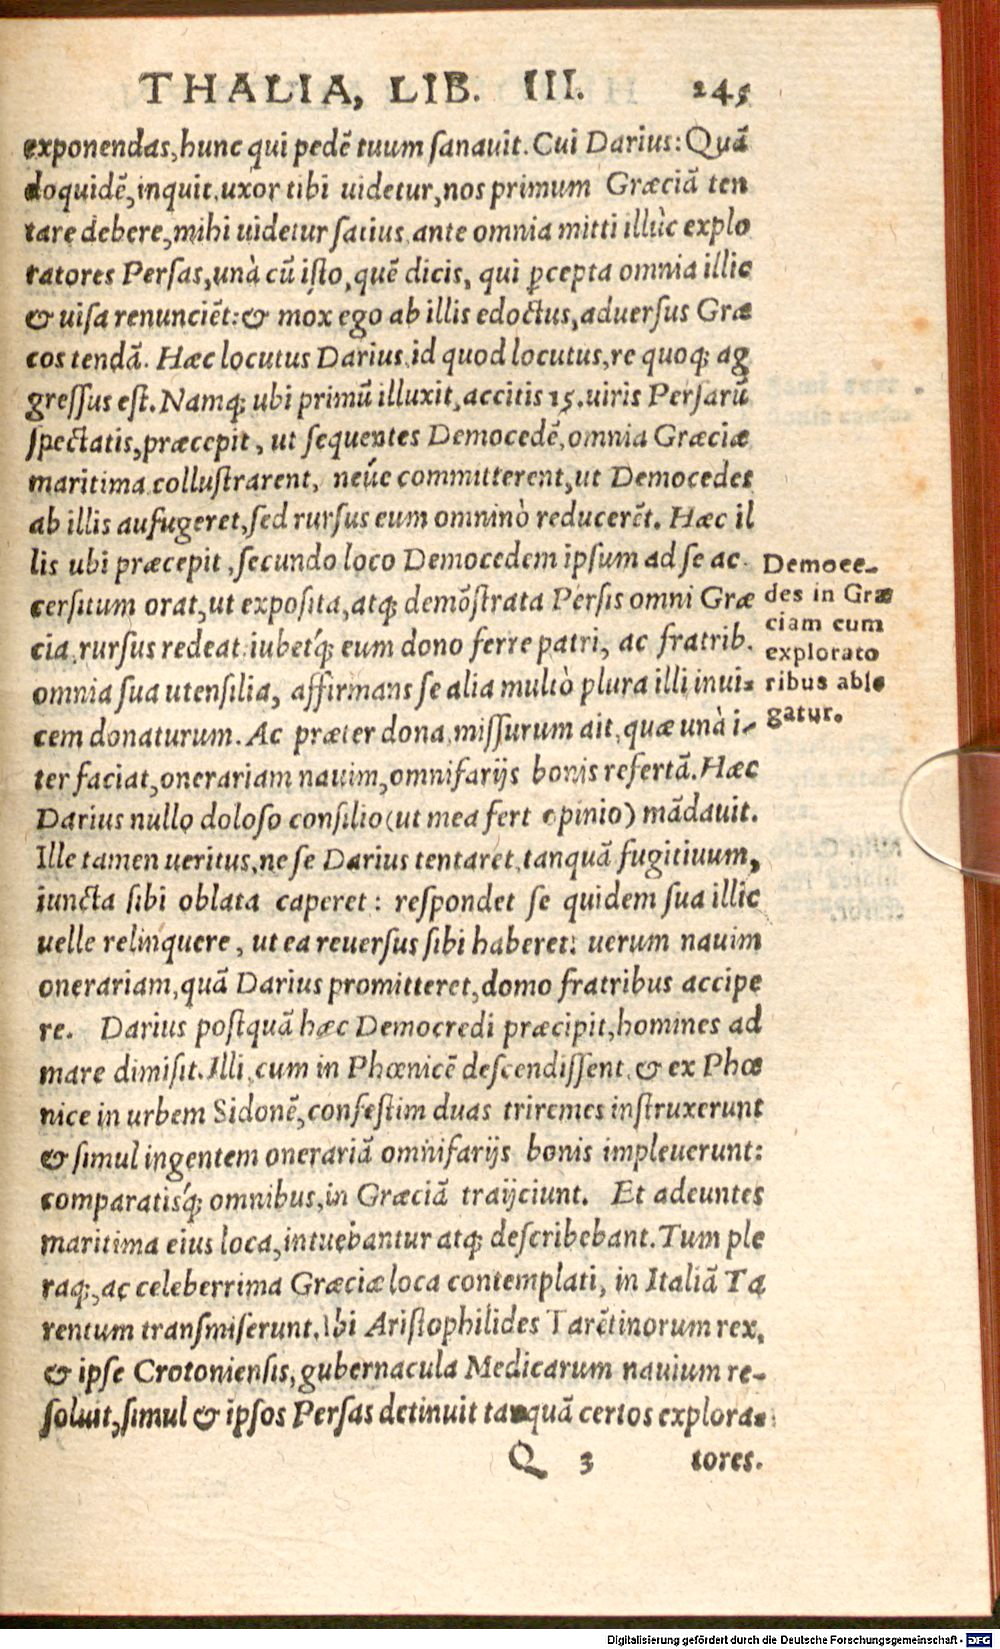 THALIA, LIB. III. 245
exponendas, hunc qui pedē tuum sanauit. Cui Darius: Quā
doquidē, inquit, uxor tibi uidetur, nos primum Græciā ten
tare debere, mihi uidetur satius, ante omnia mitti illùc explo
ratores Persas, unà cū isto, quē dicis, qui ꝑcepta omnia illic
& uisa renunciēt: & mox ego ab illis edoctus, aduersus Græ
cos tendā. Hæc locutus Darius, id quod locutus, re quoq; ag
gressus est. Namq; ubi primū illuxit, accitis 15. uiris Persarū
spectatis, præcepit, ut sequentes Democedē, omnia Græciæ
maritima collustrarent, néue committerent, ut Democedes
ab illis aufugeret, sed rursus eum omninò reducerēt. Hæc il
lis ubi præcepit, secundo loco Democedem ipsum ad se ac
cersitum orat, ut exposita, atq; demōstrata Persis omni Græ
cia, rursus redeat: iubetq́; eum dono ferre patri, ac fratrib.
omnia sua utensilia, affirmans se alia multò plura illi inui-
cem donaturum. Ac præter dona, missurum ait, quæ unà i-
ter faciat, onerariam nauim, omnifarijs bonis refertā. Hæc
Darius nullo doloso consilio (ut mea fert opinio) mādauit.
Ille tamen ueritus, ne se Darius tentaret, tanquā fugitiuum,
iuncta sibi oblata caperet: respondet se quidem sua illic
uelle relinquere, ut ea reuersus sibi haberet: uerum nauim
onerariam, quā Darius promitteret, domo fratribus accipe
re. Darius postquā hæc Democredi præcipit, homines ad
mare dimisit. Illi, cum in Phœnicē descendissent, & ex Phœ
nice in urbem Sidonē, confestim duas triremes instruxerunt
& simul ingentem onerariā omnifarijs bonis impleuerunt:
comparatisq́; omnibus, in Græciā traijciunt. Et adeuntes
maritima eius loca, intuebantur atq; describebant. Tum ple
raq;, ac celeberrima Græciæ loca contemplati, in Italiā Ta
rentum transmiserunt. Ibi Aristophilides Tarētinorum rex,
& ipse Crotoniensis, gubernacula Medicarum nauium re-
soluit, simul & ipsos Persas detinuit tanquā certos explora-
Q 3 tores.
Democe-
des in Græ
ciam cum
explorato
ribus able
gatur.
Digitalisierung gefördert durch die Deutsche Forschungsgemeinschaft - DFG